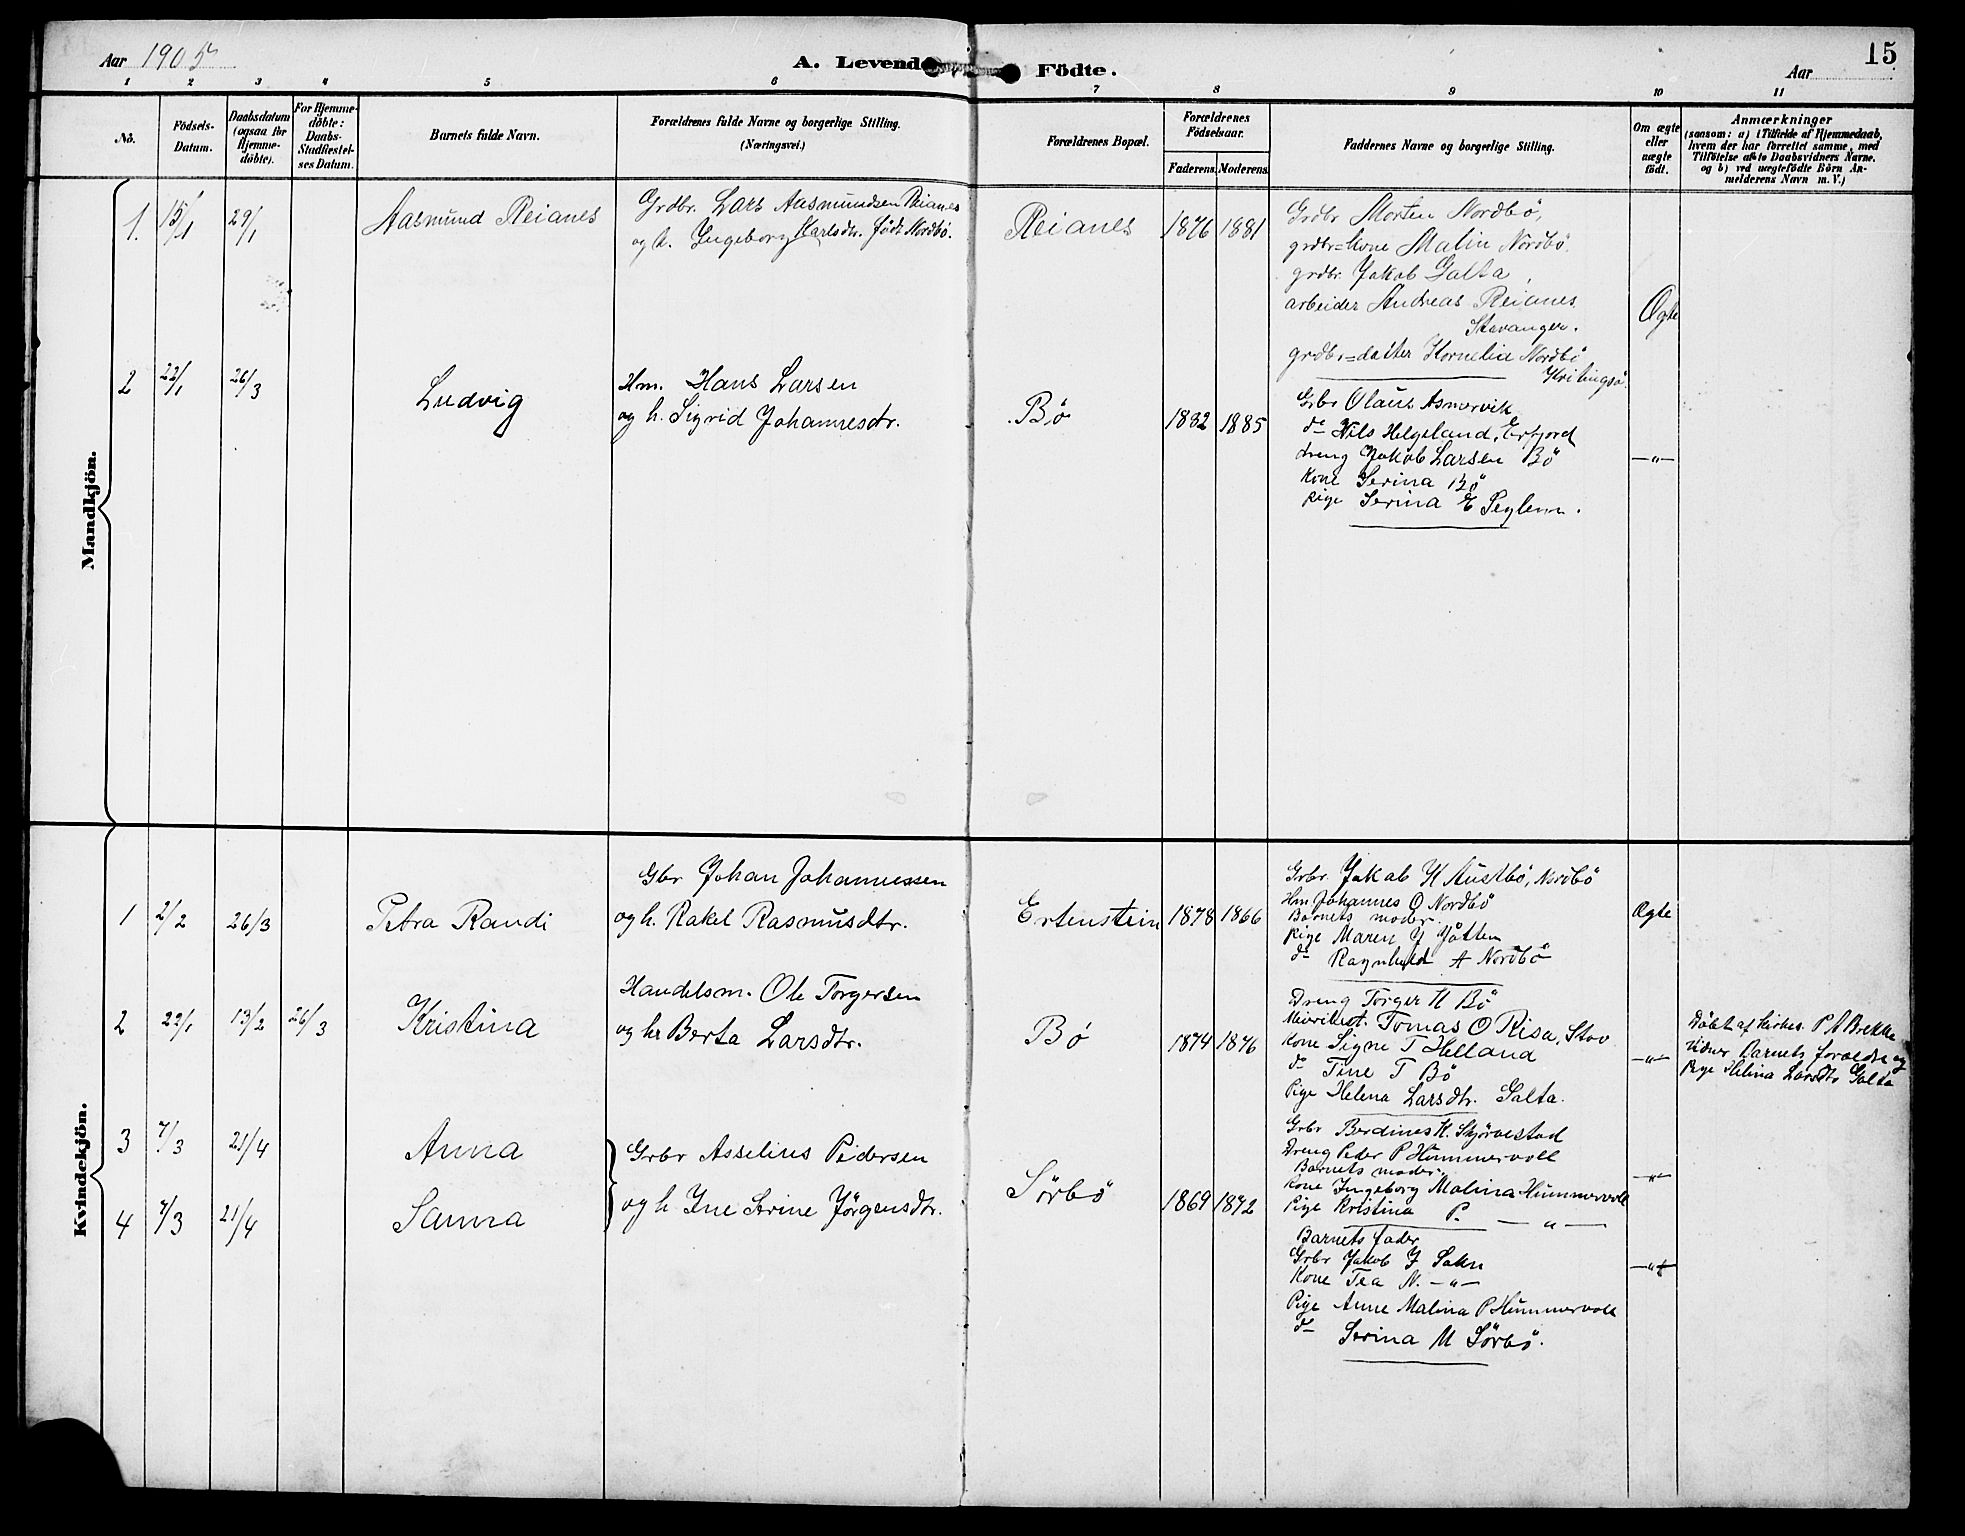 Aar 1905
A. Levende Födte.
Aar
15
1 2 3 4 5 6 7 8 9 10 11
No.
Födsels-Datum.
Daabsdatum (ogsaa for Hjemme-döbte).
For Hjemme-döbte: Daabs-Stadfæstel-ses Datum.
Barnets fulde Navn.
Forældrenes fulde Navne og borgerlige Stilling. (Næringsvei.)
Forældrenes Bopæl.
Forældrenes Födselsaar.
Faderens. Moderens.
Faddernes Navne og borgerlige Stilling.
Om ægte eller uægte födt.
Anmærkninger
(saasom: a) i Tilfælde af Hjemmedaab,
hvem der har forrettet samme, med
Tilföielse af to Daabsvidners Navne.
og b) ved uægtefödte Börn An-
melderens Navn m. V.)
Mandkjön.
1. 15/1 29/1
Aasmund Reianes
Grdbr. Lars Aasmundsen Reianes
og h. Ingeborg Karlsdtr. födt Nordbö.
Reianes
1876 1881
Grdbr Morten Nordbö,
grdbr=kone Malin Nordbö.
grdbr. Jakob Galta,
arbeider Andreas Reianes
Stavanger.
grdbr=datter Kornelia Nordbö
Kvitingsö.
Ægte
2 22/1 26/3
Ludvig
Hm. Hans Larsen
og h. Sigrid Johannesdtr.
Bø
1882 1885
Grbr Olaus Asmervik
do Nils Helgeland, Erfjord
dreng Jakob Larsen Bö
Kone Serina Bö
Pige Serina E Seglem.
—"—
Kvindekjön.
1 2/2 26/3
Petra Randi
Gbr Johan Johannessen
og h. Rakel Rasmusdtr.
Ertenstein
1878 1866
Grbr. Jakob H Austbö, Nordbö
Hm Johannes O Nordbö
Barnets moder.
Pige Maren J Jåtten
do Ragnhild A Nordbö
Ægte
2 22/1 13/2 26/3
Kristina
Handelsm. Ole Torgersen
og hr Berta Larsdtr.
Bø
1874 1876
Dreng Torger H Bö
Tomas O Risa, Stav.
Kone Signe T Helland
do Tine T Bö
Pige Helena Larsdtr. Galta.
—"—
Döbt af Kirkes. P A Brekke
vidner Barnets foreldre og
Pige Helina Larsdtr Galta
3 7/3 21/4
Anna
4 7/3 21/4
Sanna
Grbr Asselius Pedersen
og h. Ine Serine Jörgensdtr.
Sørbö
1869 1872
Grbr Berdines H. Skjörvestad
Dreng Peder P Hummervoll
Barnets moder.
Kone Ingeborg Malina Hummervoll
Pige Kristina P. — " —
—"—
Barnets fader
Grbr Jakob J Sokn
Kone Tea N. —"—
Pige Anne Malina P Hummervoll
do Serina M Sörbö.
—"—